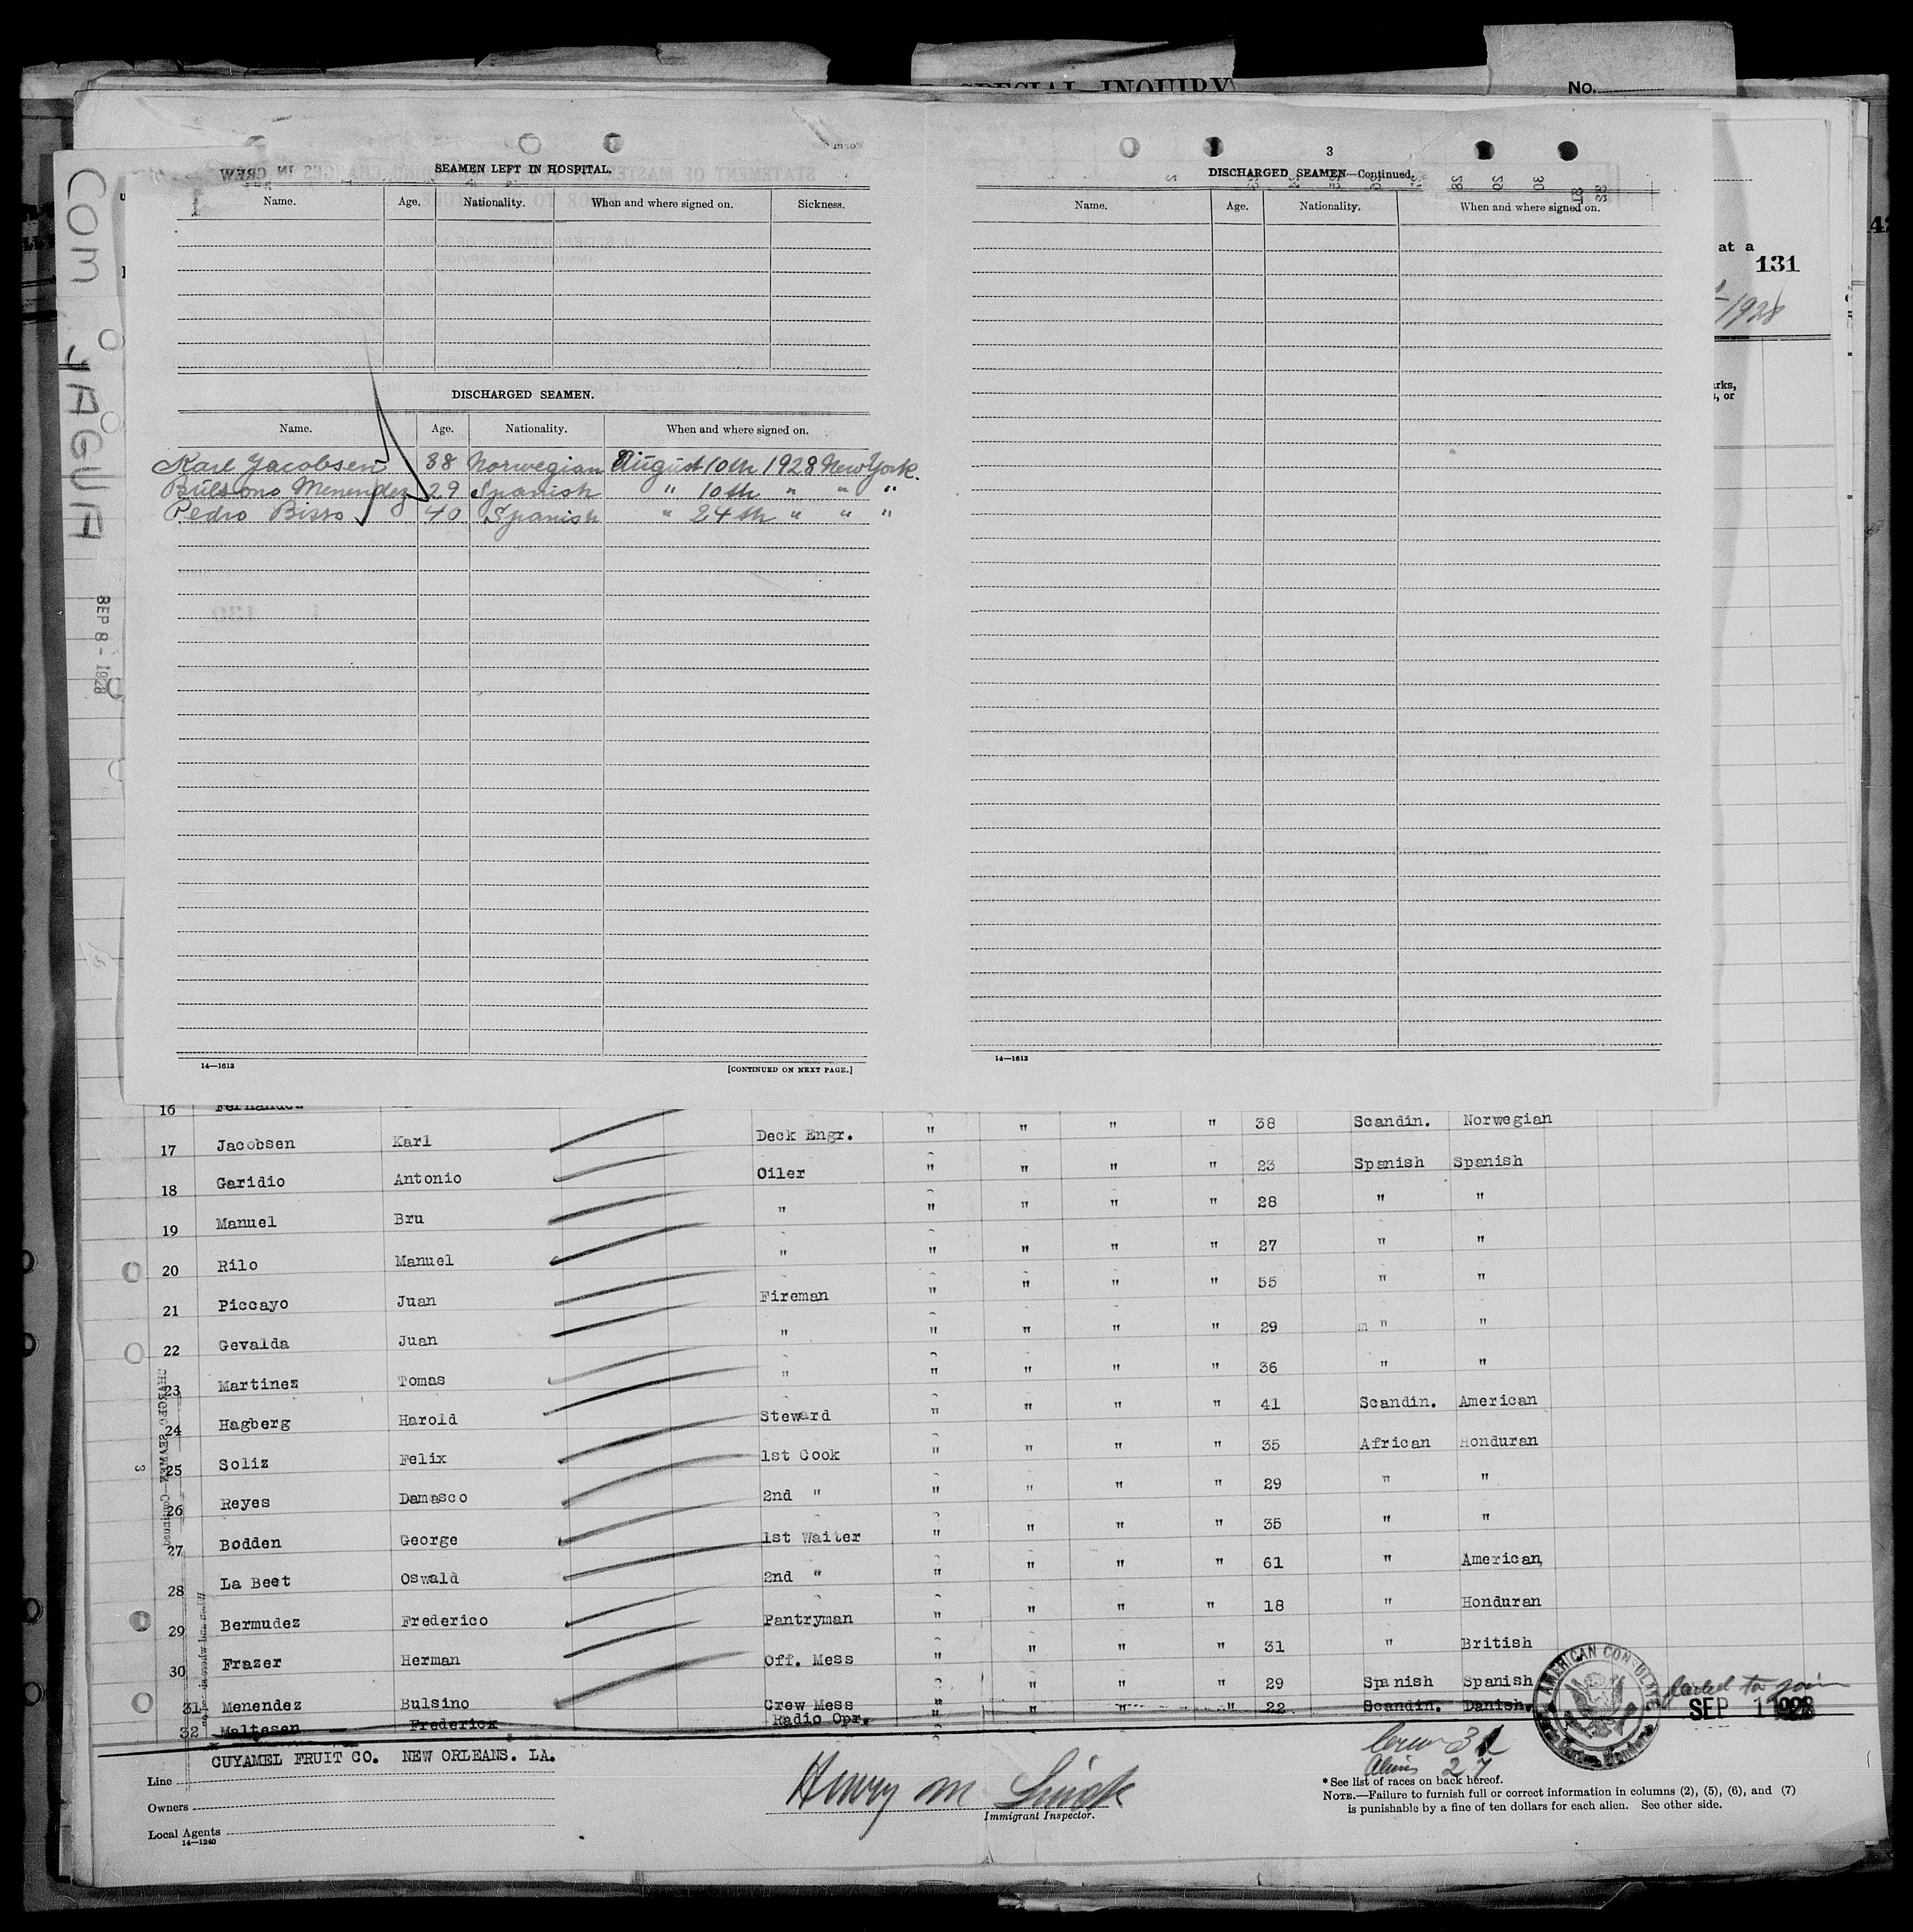 SPECIAL INQUIRY
No.
at a
131
1928
COM YAGUA
SEP 8 - 1928
SEAMEN LEFT IN HOSPITAL.
Name. Age. Nationality. When and where signed on. Sickness.
DISCHARGED SEAMEN.
Name. Age. Nationality. When and where signed on.
Karl Jacobsen 38 Norwegian August 10th 1928 New York.
Bulsono Menendez 29 Spanish " 10th " " "
Pedro Bisso 40 Spanish " 24th " " "
14—1613
[CONTINUED ON NEXT PAGE.]
3
DISCHARGED SEAMEN—Continued.
Name. Age. Nationality. When and where signed on.
14—1613
16 Fernandez
17 Jacobsen Karl Deck Engr. " " " " 38 Scandin. Norwegian
18 Garidio Antonio Oiler " " " " 23 Spanish Spanish
19 Manuel Bru " " " " " 28 " "
20 Rilo Manuel " " " " " 27 " "
21 Piccayo Juan Fireman " " " " 55 " "
22 Gevalda Juan " " " " " 29 m " "
23 Martinez Tomas " " " " " 36 " "
24 Hagberg Harold Steward " " " " 41 Scandin. American
25 Soliz Felix 1st Cook " " " " 35 African Honduran
26 Reyes Damasco 2nd " " " " " 29 " "
27 Bodden George 1st Waiter " " " " 35 " "
28 La Beet Oswald 2nd " " " " " 61 " American
29 Bermudez Frederico Pantryman " " " " 18 " Honduran
30 Frazer Herman Off. Mess " " " " 31 " British
31 Menendez Bulsino Crew Mess " " " " 29 Spanish Spanish
32 Maltesen Frederick Radio Opr. " " " " 22 Scandin. Danish.
AMERICAN CONSULATE
failed to join
SEP 1 1928
Line CUYAMEL FRUIT CO. NEW ORLEANS. LA.
Owners
Local Agents
14—1240
Henry M
Immigrant Inspector.
Crew 31
Aliens 27
* See list of races on back hereof.
NOTE.—Failure to furnish full or correct information in columns (2), (5), (6), and (7)
is punishable by a fine of ten dollars for each alien. See other side.